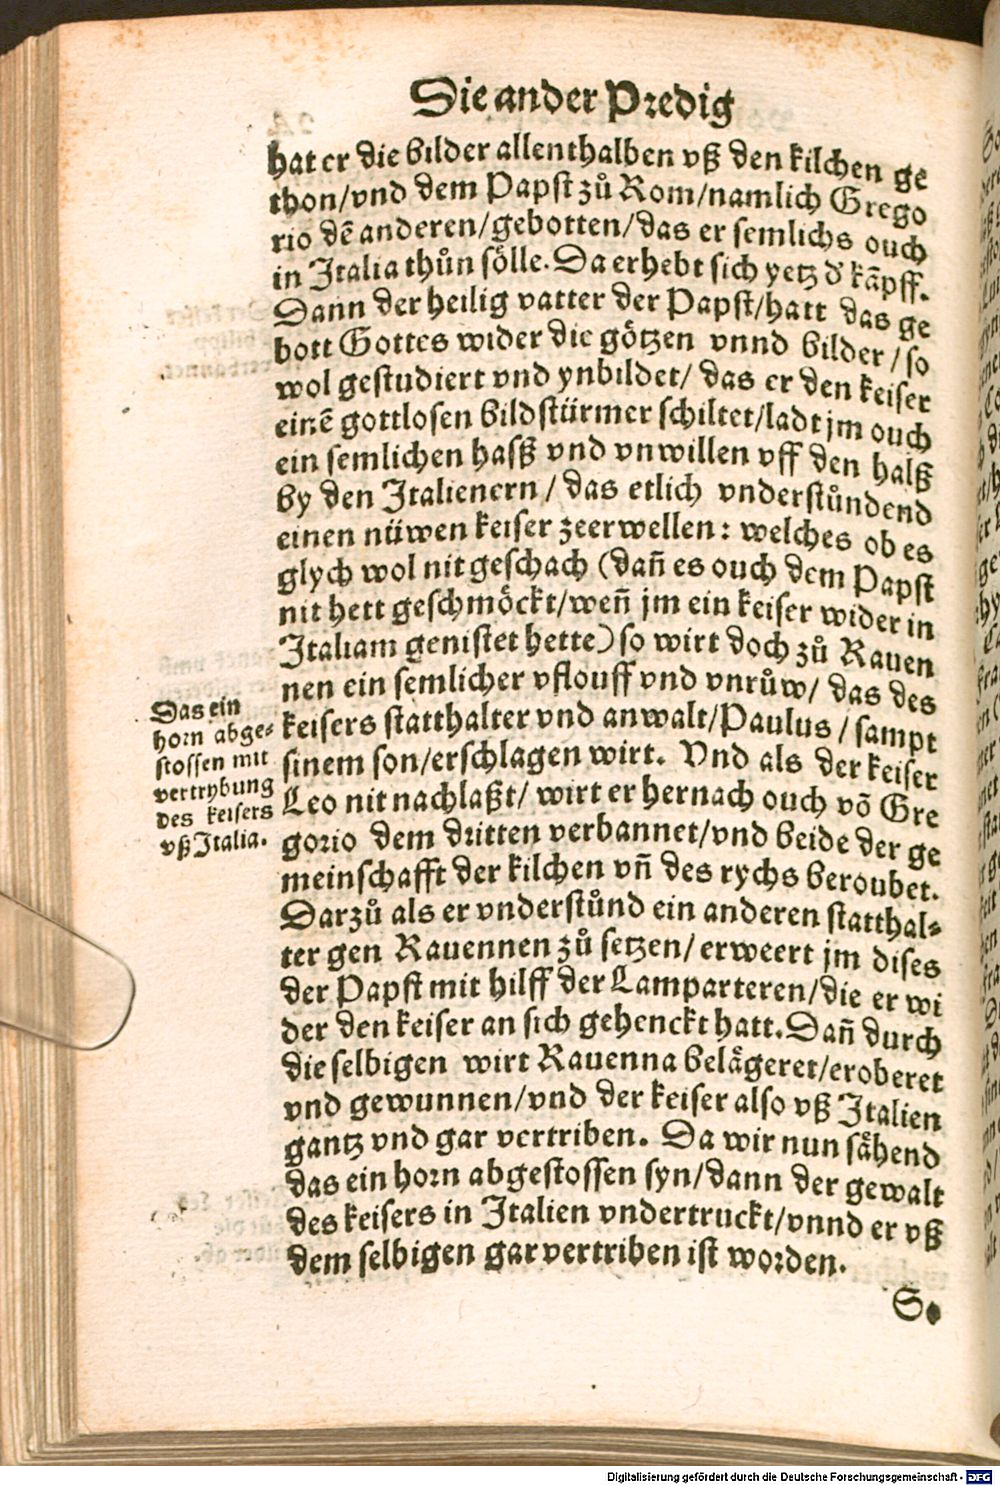 Die ander Predig
hat er die bilder allenthalben vß den kilchen ge
thon/vnd dem Papst zů Rom/namlich Grego
rio dē anderen/gebotten/das er semlichs ouch
in Italia thůn sölle. Da erhebt sich yetz d' kāpff.
Dann der heilig vatter der Papst/hatt das ge
bott Gottes wider die götzen vnnd bilder/so
wol gestudiert vnd ynbildet/ das er den keiser
einē gottlosen bildstürmer schiltet/ladt jm ouch
ein semlichen haſß vnd vnwillen vff den halß
by den Italienern/ das etlich vnderstůndend
einen nüwen keiser zeerwellen: welches ob es
glych wol nit geschach (dañ es ouch dem Papst
nit hett geschmöckt/weñ jm ein keiser wider in
Italiam genistet hette) so wirt doch zů Rauen
nen ein semlicher vflouff vnd vnrůw/ das des
keisers statthalter vnd anwalt/Paulus/sampt
sinem son/erschlagen wirt. Vnd als der keiser
Leo nit nachlaßt/ wirt er hernach ouch vō Gre
gorio dem dritten verbannet/vnd beide der ge
meinschafft der kilchen vñ des rychs beroubet.
Darzů als er vnderstůnd ein anderen statthal-
ter gen Rauennen zů setzen/ erweert jm dises
der Papst mit hilff der Lamparteren/die er wi
der den keiser an sich gehenckt hatt. Dañ durch
die selbigen wirt Rauenna belägeret/eroberet
vnd gewunnen/vnd der keiser also vß Italien
gantz vnd gar vertriben. Da wir nun sähend
das ein horn abgestossen syn/dann der gewalt
des keisers in Italien vndertruckt/vnnd er vß
dem selbigen gar vertriben ist worden.
Das ein
horn abge-
stossen mit
vertrybung
des keisers
vß Italia.
Digitalisierung gefördert durch die Deutsche Forschungsgemeinschaft - DFG